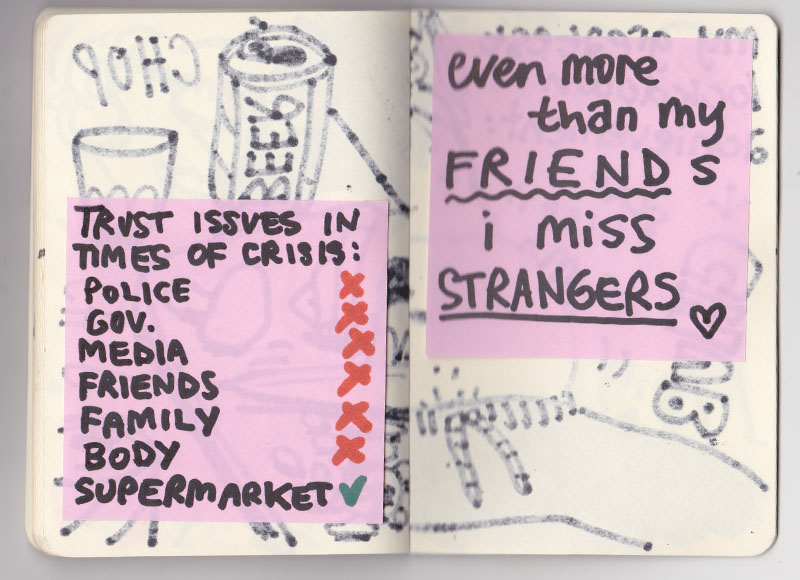 CHOP
BEER
TRUST ISSUES IN
TIMES OF CRISIS:
POLICE X
GOV. X
MEDIA X
FRIENDS X
FAMILY X
BODY X
SUPERMARKET ✓
even more
than my
FRIENDS
i miss
STRANGERS ♡